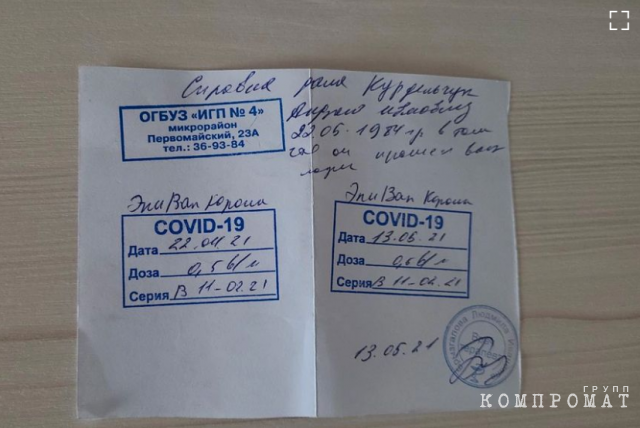 Справка дана Курдельчук
22.05.1984 г.р. в том
что он прошел вак
ОГБУЗ «ИГП № 4»
микрорайон
Первомайский, 23А
тел.: 36-93-84
ЭпиВак Корона
COVID-19
Дата 22.04.21
Доза 0,5 в/м
Серия В 11-02.21
ЭпиВак Корона
COVID-19
Дата 13.05.21
Доза 0,5 в/м
Серия В 11-02.21
13.05.21
Людмила
ГРУПП
КОМПРОМАТ